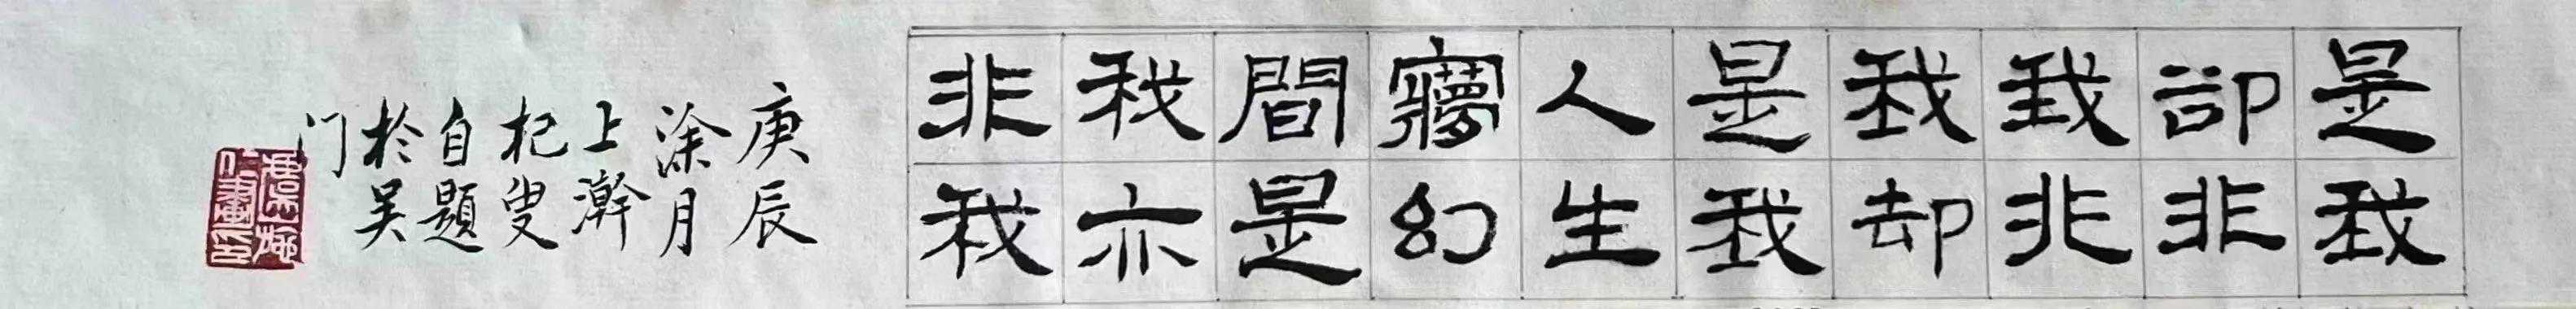 是我
卻非
我非
我却
是我
人生
㝱幻
間是
我亦
非我
庚辰
涂月
上澣
杞叟
自題
於吴
门